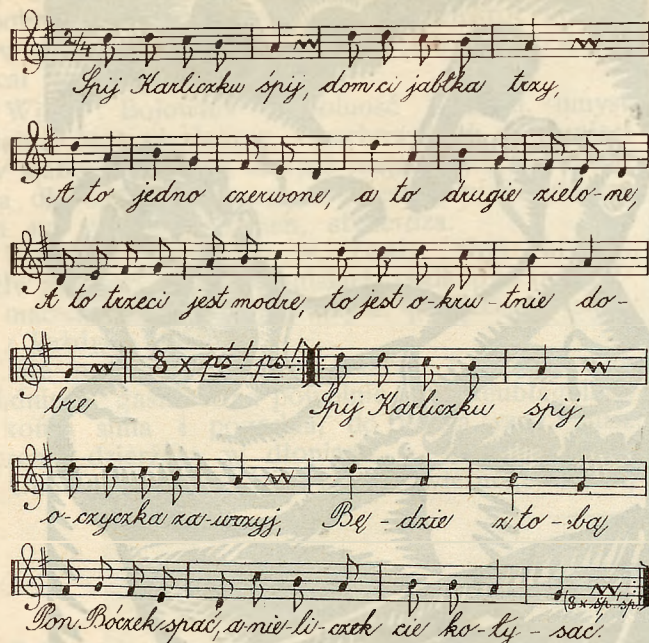 2/4
Śpij Karliczku śpij, dom ci jabłka trzy,
A to jedno czerwone, a to drugie zielo-ne,
A to trzeci jest modre, to jest o-kru-tnie do-
8 x pś! pś!
bre Śpij Karliczku śpij,
o-czyczka za-wrzyj, Bę-dzie z to-bą
(8 x śp! śp!)
Pon Bóczek spać, a nie-li-czek cie ko-ły-sać